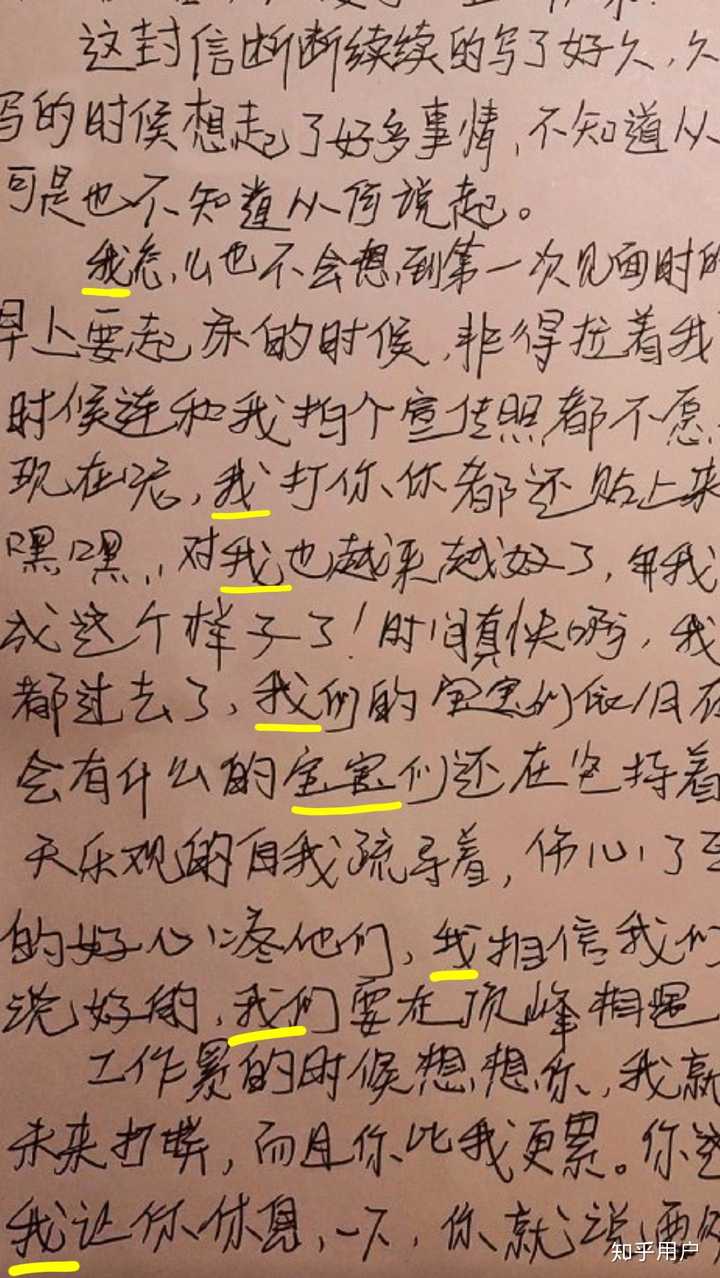 这封信断断续续的写了好久,久
写的时候想起了好多事情,不知道从
可是也不知道从何说起。
我怎么也不会想到第一次见面时的
早上要起床的时候,非得拉着我
时候连和我拍个宣传照都不愿
现在呢,我打你、你都还贴上来
嘿嘿,对我也越来越好了,
成这个样子了!时间真快啊,我
都过去了、我们的宝宝们依旧在
会有什么的宝宝们还在坚持着
天乐观的自我疏导着,伤心了
的好心疼他们,我相信我们
说好的,我们要在顶峰相遇
工作累的时候想想你,我就
未来打拼,而且你比我更累。你
我让你休息一下,你就说
知乎用户